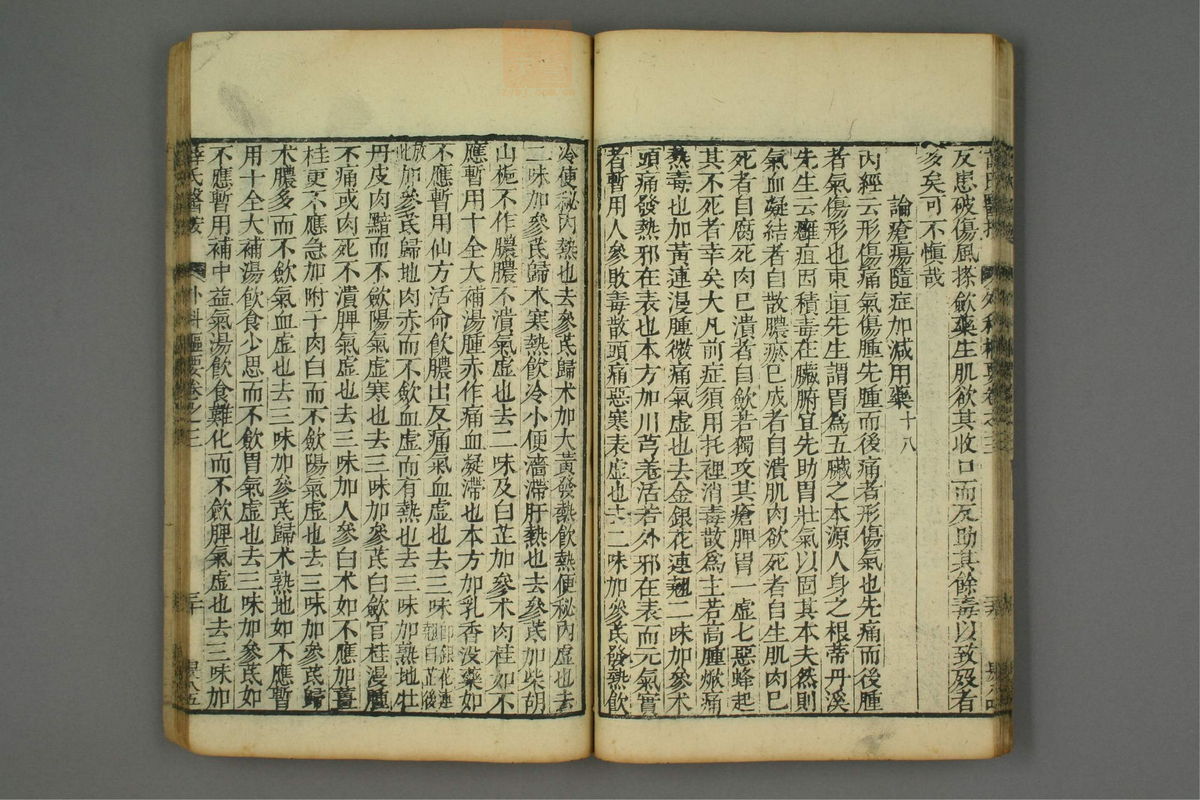 反患破傷風搽斂藥生肌欲其收口而反助其餘毒以致殁者
多矣可不慎哉
論瘡瘍隨症加減用藥十八
內經云形傷痛氣傷腫先腫而後痛者形傷氣也先痛而後腫
者氣傷形也東垣先生謂胃為五臟之本源人身之根蒂丹溪
先生云癰疽因積毒在臟腑宜先助胃壯氣以固其本夫然則
氣血凝結者自散膿瘀已成者自潰肌肉欲死者自生肌肉已
死者自腐死肉已潰者自斂若獨攻其瘡脾胃一虛七惡蜂起
其不死者幸矣大凡前症須用托裡消毒散為主若高腫焮痛
熱毒也加黃連漫腫微痛氣虛也去金銀花連翹二味加參术
頭痛發熱邪在表也本方加川芎羌活若外邪在表而元氣實
者暫用人參敗毒散頭痛惡寒表虛也去二味加參芪發熱飲
冷便秘內熱也去參芪歸术加大黃發熱飲熱便秘內虛也去
二味加參芪歸术寒熱飲冷小便濇滯肝熱也去參芪加柴胡
山梔不作膿膿不潰氣虛也去二味及白芷加參术肉桂如不
應暫用十全大補湯腫赤作痛血凝滯也本方加乳香沒藥如
不應暫用仙方活命飲膿出反痛氣血虛也去三味即銀花連翹白芷後
放此加參芪歸地肉赤而不斂血虛而有熱也去三味加熟地牡
丹皮肉黯而不斂陽氣虛寒也去三味加參芪白斂官桂漫腫
不痛或肉死不潰脾氣虛也去三味加人參白术如不應加薑
桂更不應急加附子肉白而不斂陽氣虛也去三味加參芪歸
术膿多而不斂氣血虛也去三味加參芪歸术熟地如不應暫
用十全大補湯飲食少思而不斂胃氣虛也去三味加參芪如
不應暫用補中益氣湯飲食難化而不斂脾氣虛也去三味加
薛氏醫按 外科樞要卷之三 三十